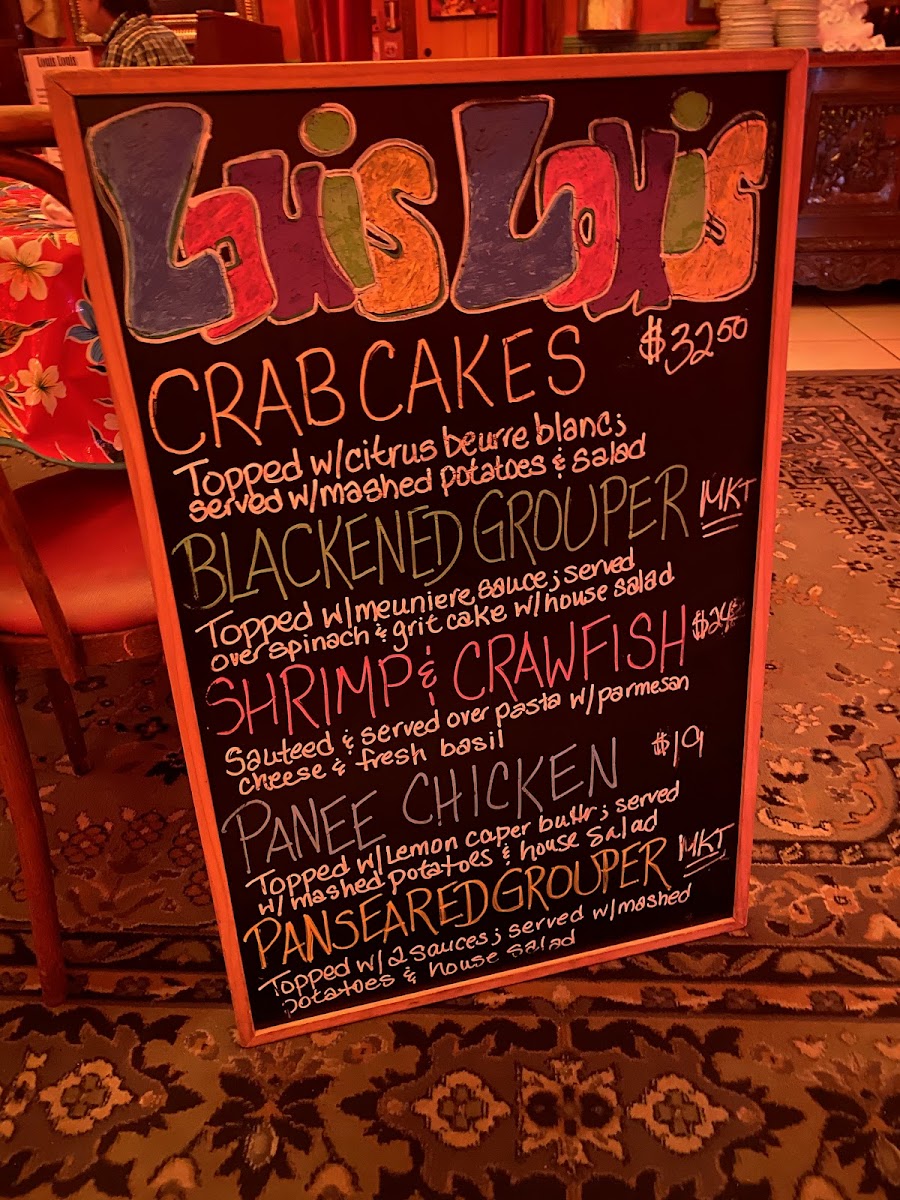 Louis Louis
Louis Louis
CRAB CAKES $32 50
Topped w/citrus beurre blanc;
served w/mashed potatoes & salad
BLACKENED GROUPER MKT
Topped w/meuniere sauce; served
over spinach & grit cake w/house salad
SHRIMP & CRAWFISH
Sauteed & served over pasta w/parmesan
cheese & fresh basil
PANEE CHICKEN $19
Topped w/Lemon caper buttr; served
w/ mashed potatoes & house salad
PANSEARED GROUPER MKT
Topped w/2 sauces; served w/mashed
potatoes & house salad